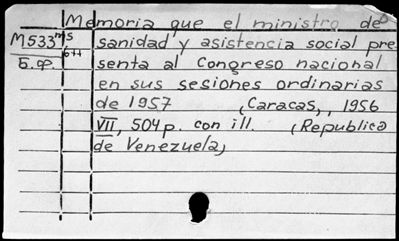 Memoria que el ministro de
M533ms sanidad y asistencia social pre
б.ф. 6н senta al Congreso nacional
en sus sesiones ordinarias
de 1957 (Caracas,, 1956
VII, 504 p. con ill. (Republica
de Venezuela)